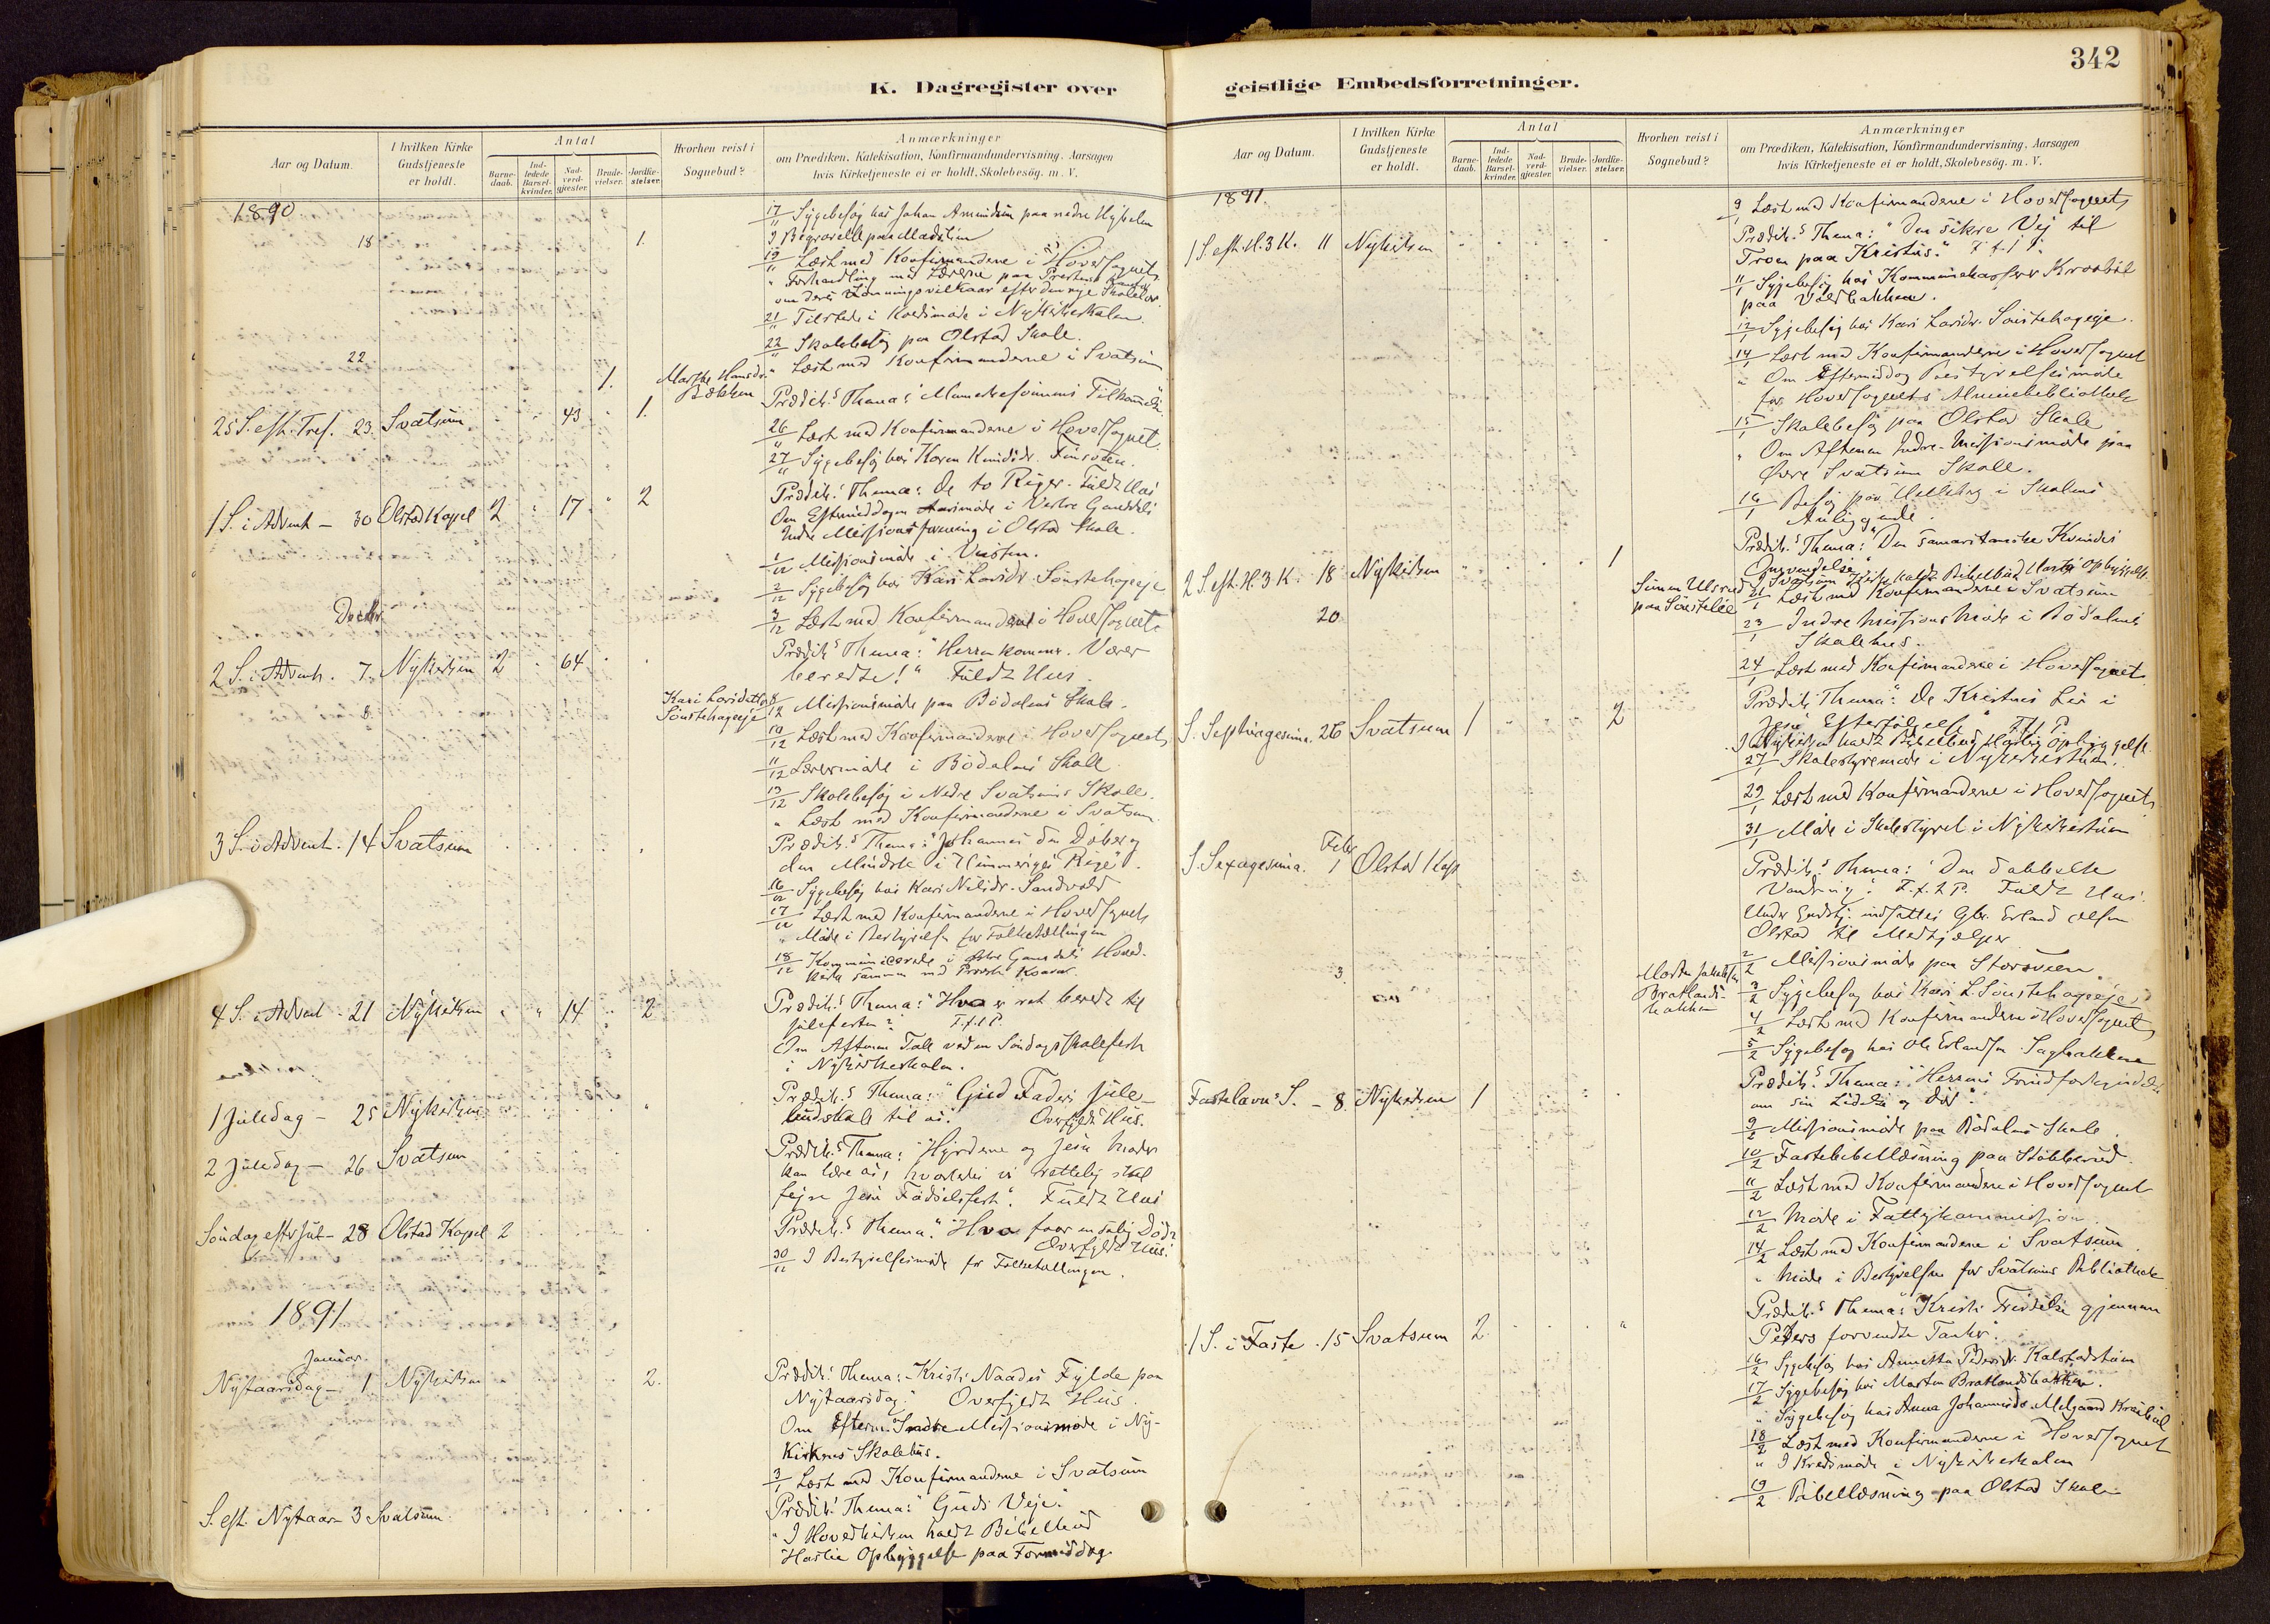 342
K. Dagregister over
geistlige Embedsforretninger.
Aar og Datum.
I hvilken Kirke Gudstjeneste er holdt.
Antal
Barne-daab.
Ind-ledede Barsel-kvinder.
Nad-verd-gjæster.
Brude-vielser.
Jordfæ-stelser.
Hvorhen reist i Sognebud?
Anmærkninger
om Prædiken, Katekisation, Konfirmandundervisning, Aarsagen
hvis Kirketjeneste ei er holdt, Skolebesøg. m. V.
1890
17/11 Sygebesøg hos Johan Amundsen paa nedre
18 1.
I Begravelse paa
19/11 Læst med Konfirmanderne i Hovedsognet
" Forhandling med Lærerne paa
om deres Lønningsvilkaar efter den nye Skolelov.
21/11 Tilstede i Kredsmøde i Nykirkeskolen
22/11 Skolebesøg paa Olstad Skole.
22 1. Marthe Hansdr. Bækken
" Læst med Konfirmanderne i Svatsum
25 S. eft. Tref. 23. Svatsum 43 1.
Prædik. Thema:
26/11 Læst med Konfirmanderne i Hovedsognet
27/11 Sygebesøg hos Karen
1 S. i Advent - 30 Olstad Kapel 2 17 2
Prædik. Thema: De to Riger. Fuldt Hus
Om Eftermiddagen Aarsmøde i Vestre Gausdals
Indre Missionsforening i Olstad Skole.
1/12 Missionsmøde i
2/12 Sygebesøg hos Kari Larsdr. Sønstehageeje
Decbr.
3/12 Læst med Konfirmanderne i Hovedsognet
2 S. i Advent. 7. Nykirken 2 64
Prædik. Thema: "Herren kommer. Værer
beredte!" Fuldt Hus.
8. Kari Larsdatter Sønstehageeje
8/12 Missionsmøde paa Bødalens Skole.
10/12 Læst med Konfirmanderne i Hovedsognet
11/12 Lærermøde i Bødalens Skole
13/12 Skolebesøg i Nedre Svatsums Skole.
" Læst med Konfirmanderne i Svatsum
3 S. i Advent. 14 Svatsum
Prædik. Thema: "Johannes den Døber og
den Mindste i Himmeriges Rige".
16/12 Sygebesøg hos Kari Nilsdr. Sandvold
17/12 Læst med Konfirmanderne i Hovedsognet
" Møde i Bestyrelsen for Folketællingen
18/12 Kommunicerede i Østre Gausdals Hoved-
kirke sammen med Provst
4 S. i Advent - 21 Nykirken 14 2
Prædik. Thema: "Hvo er ret beredt til
Julefesten?" F.f.l.P.
Om Aftenen Tale ved en Søndagsskolefest
i Nykirkeskolen.
1 Juledag - 25 Nykirken
Prædik. Thema: "Gud Faders Jule-
budskab til os." Overfyldt Hus.
2 Juledag - 26 Svatsum
Prædik. Thema: "Hyrderne og Jesu Moder
kan lære os, hvorledes vi rettelig skal
fejre Jesu Fødselsfest". Fuldt Hus
Søndag efter Jul - 28 Olstad Kapel 2
Prædik. Thema: "Hvo faar en salig Død?
Overfyldt Hus.
30/12 I Bestyrelsesmøde for Folketællingen.
1891
Januar.
Nytaarsdag - 1. Nykirken 2.
Prædik. Thema: "Kristi Naades Fylde paa
Nytaarsdag." Overfyldt Hus.
Om Efterm. Indre Missionsmøde i Ny-
kirkens Skolehus.
3/1 Læst med Konfirmanderne i Svatsum
S. eft. Nytaar - 3 Svatsum
Prædik. Thema: "Guds Veje."
" I Hovedkirken holdt Bibelbud
Haslie Opbyggelse paa Formiddag.
Aar og Datum.
I hvilken Kirke Gudstjeneste er holdt.
Antal
Barne-daab.
Ind-ledede Barsel-kvinder.
Nad-verd-gjæster.
Brude-vielser.
Jordfæ-stelser.
Hvorhen reist i Sognebud?
Anmærkninger
om Prædiken, Katekisation, Konfirmandundervisning, Aarsagen
hvis Kirketjeneste ei er holdt, Skolebesög. m. V.
1891.
9/1 Læst med Konfirmanderne i Hovedsognet
1 S. eft. H.3 K. 11 Nykirken
Prædik. Thema: "Den sikre Vej til
Troen paa Kristus."
11/1 Sygebesøg hos Kommunekasserer
paa
12/1 Sygebesøg hos Kari Larsdr. Sønstehageeje.
14/1 Læst med Konfirmanderne i Hovedsognet
" Om Eftermiddag Bestyrelsesmøde
for Hovedsognets Almuebibliothek
15/1 Skolebesøg paa Olstad Skole
" Om Aftenen Indre-Missionsmøde paa
Øvre Svatsum Skole.
16/1 Besøg paa i Skolens
Anliggende
2 S. eft. H.3 K. 18 Nykirken 1
Prædik. Thema: "Den samaritanske Kvindes
Omvendelse."
I Svatsum Kirke holdt Bibelbud Haslie Opbyggelse.
20 paa Sønstelie
21/1 Læst med Konfirmanderne i Svatsum
23/1 Indre Missions Møde i Bødalens
Skolehus.
24/1 Læst med Konfirmanderne i Hovedsognet
S. Septuagesima. 26 Svatsum 1 2
Prædik. Thema: "De Kristnes Liv i
Jesu Efterfølgelse"
I Nykirken holdt Bibelbud Haslie Opbyggelse
27/1 Skolestyremøde i
29/1 Læst med Konfirmanderne i Hovedsognet
31/1 Møde i Skolestyret i
Febr.
S. Sexagesima. 1 Olstad Kap.
Prædik. Thema: "Den dobbelte
F.f.l.P. Fuldt Hus.
Under Gudstj. indsattes Gbr. Erland Olsen
Olstad til Medhjælper
2/2 Missionsmøde paa
3. Bratlands-bakken
3/2 Sygebesøg hos Kari L. Sønstehageeje
4/2 Læst med Konfirmanderne i Hovedsognet
5/2 Sygebesøg hos Ole Erlandsen Sagbakken
Fastelavns S. - 8. Nykirken 1
Prædik. Thema: "Herrens
om sin Lidelse og Død".
9/2 Missionsmøde paa Bødalens Skole.
10/2 Fastebibellæsning paa
11/2 Læst med Konfirmanderne i Hovedsognet
12/2 Møde i Fattigkommission
14/2 Læst med Konfirmanderne i Svatsum
" Møde i Bestyrelsen for Svatsums Bibliothek
1 S. i Faste. 15 Svatsum 2
Prædik. Thema: "Kristi Fristelse gjennem
Peters forvendte Tanker".
16/2 Sygebesøg hos Annette Pedersdr. Kalstadstuen
17/2 Sygebesøg hos Morten Bratlandsbakken.
" Sygebesøg hos Anna Johannesdr. Melgaard
18/2 Læst med Konfirmanderne i Hovedsognet
" I Kredsmøde i Nykirkeskolen
19/2 Bibellæsning paa Olstad Skole